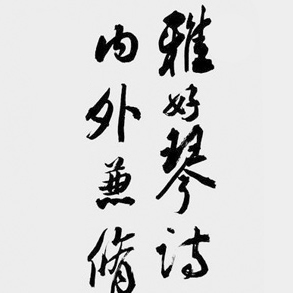 雅好琴诗
内外兼脩